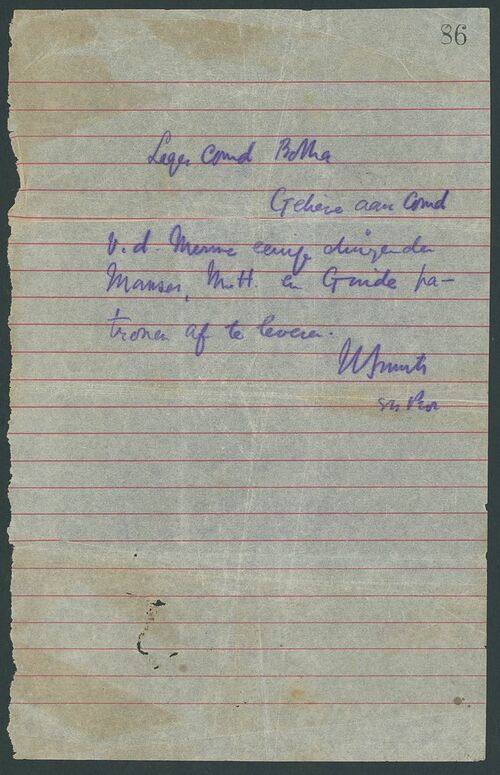 86
Leger Comd Botha
Gelieve aan Comd
v. d. Merwe eenige duizenden
Mauser, M.H. en Guide pa-
tronen af te leveren.
Smuts